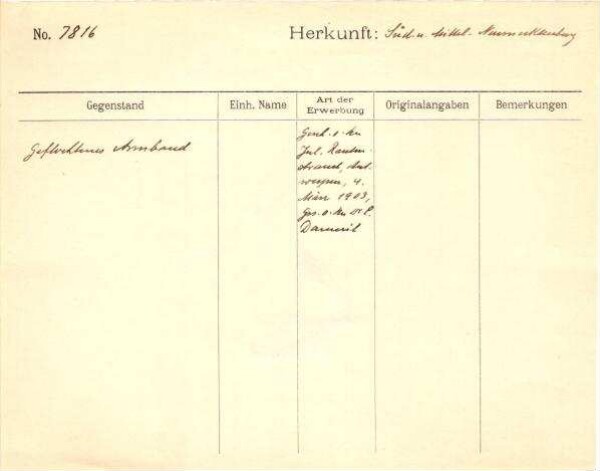 No. 7816
Herkunft: Süd- u. Mittel- Neumecklenburg
Gegenstand
Einh. Name
Art der
Erwerbung
Originalangaben
Bemerkungen
Geflochtenes Armband
Gesch. v. Hrn
Jul. Rauten-
strauch, Ant-
werpen, 4.
März 1903,
Ges. v. Hrn